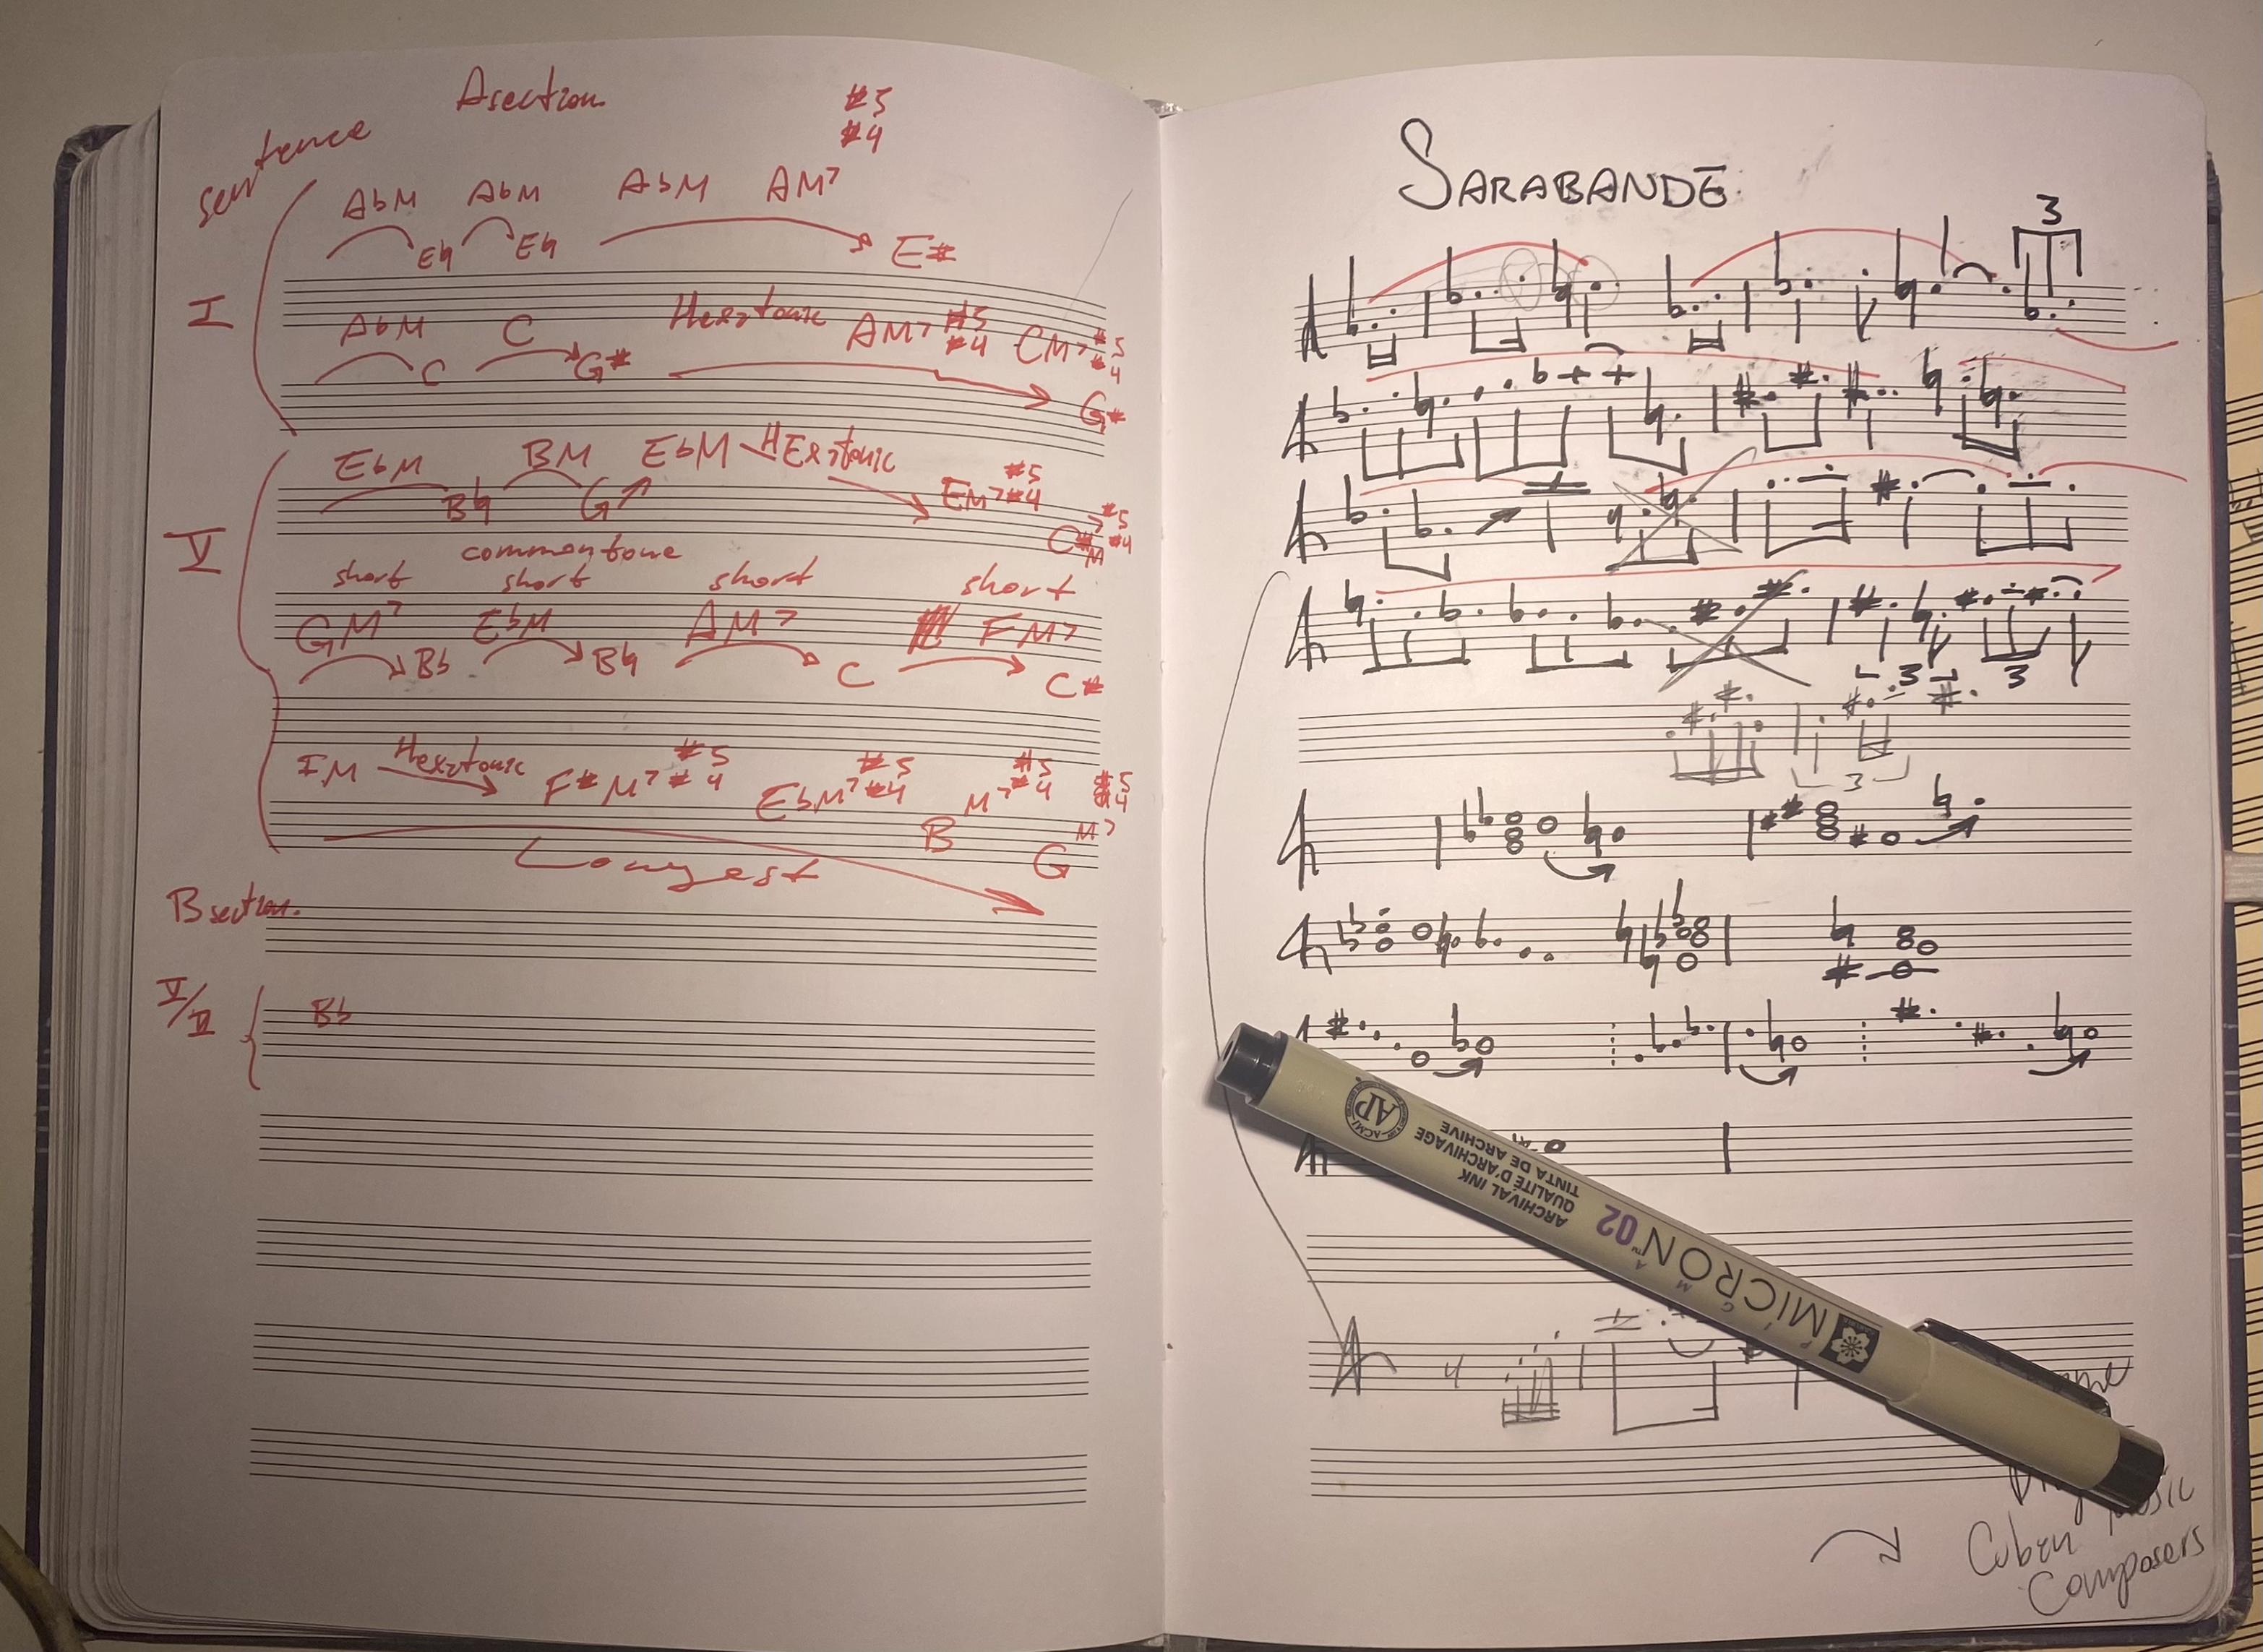 A section
sentence
#5
#4
AbM AbM AbM AM7
E♮ E♮ E#
I
AbM C Hexatonic AM7 #5 #4 CM7 #5 #4
C G# G#
EbM BM EbM Hexatonic EM7 #5 #4
B♮ G C# M7 #5 #4
V
common tone
short short short short
GM7 EbM AM7 FM7
Bb B♮ C C#
IM Hexatonic F#M7 #5 #4 EbM7 #5 #4 B M7 #5 #4 G M7 #5 #4
Longest
B section.
V/V
Bb
SARABANDE
3
3 3
3
4
AP
ACMI
ARCHIVAL INK
QUALITÉ D'ARCHIVAGE
TINTA DE ARCHIVE
MICRON™ 02
Cuban Music
Composers